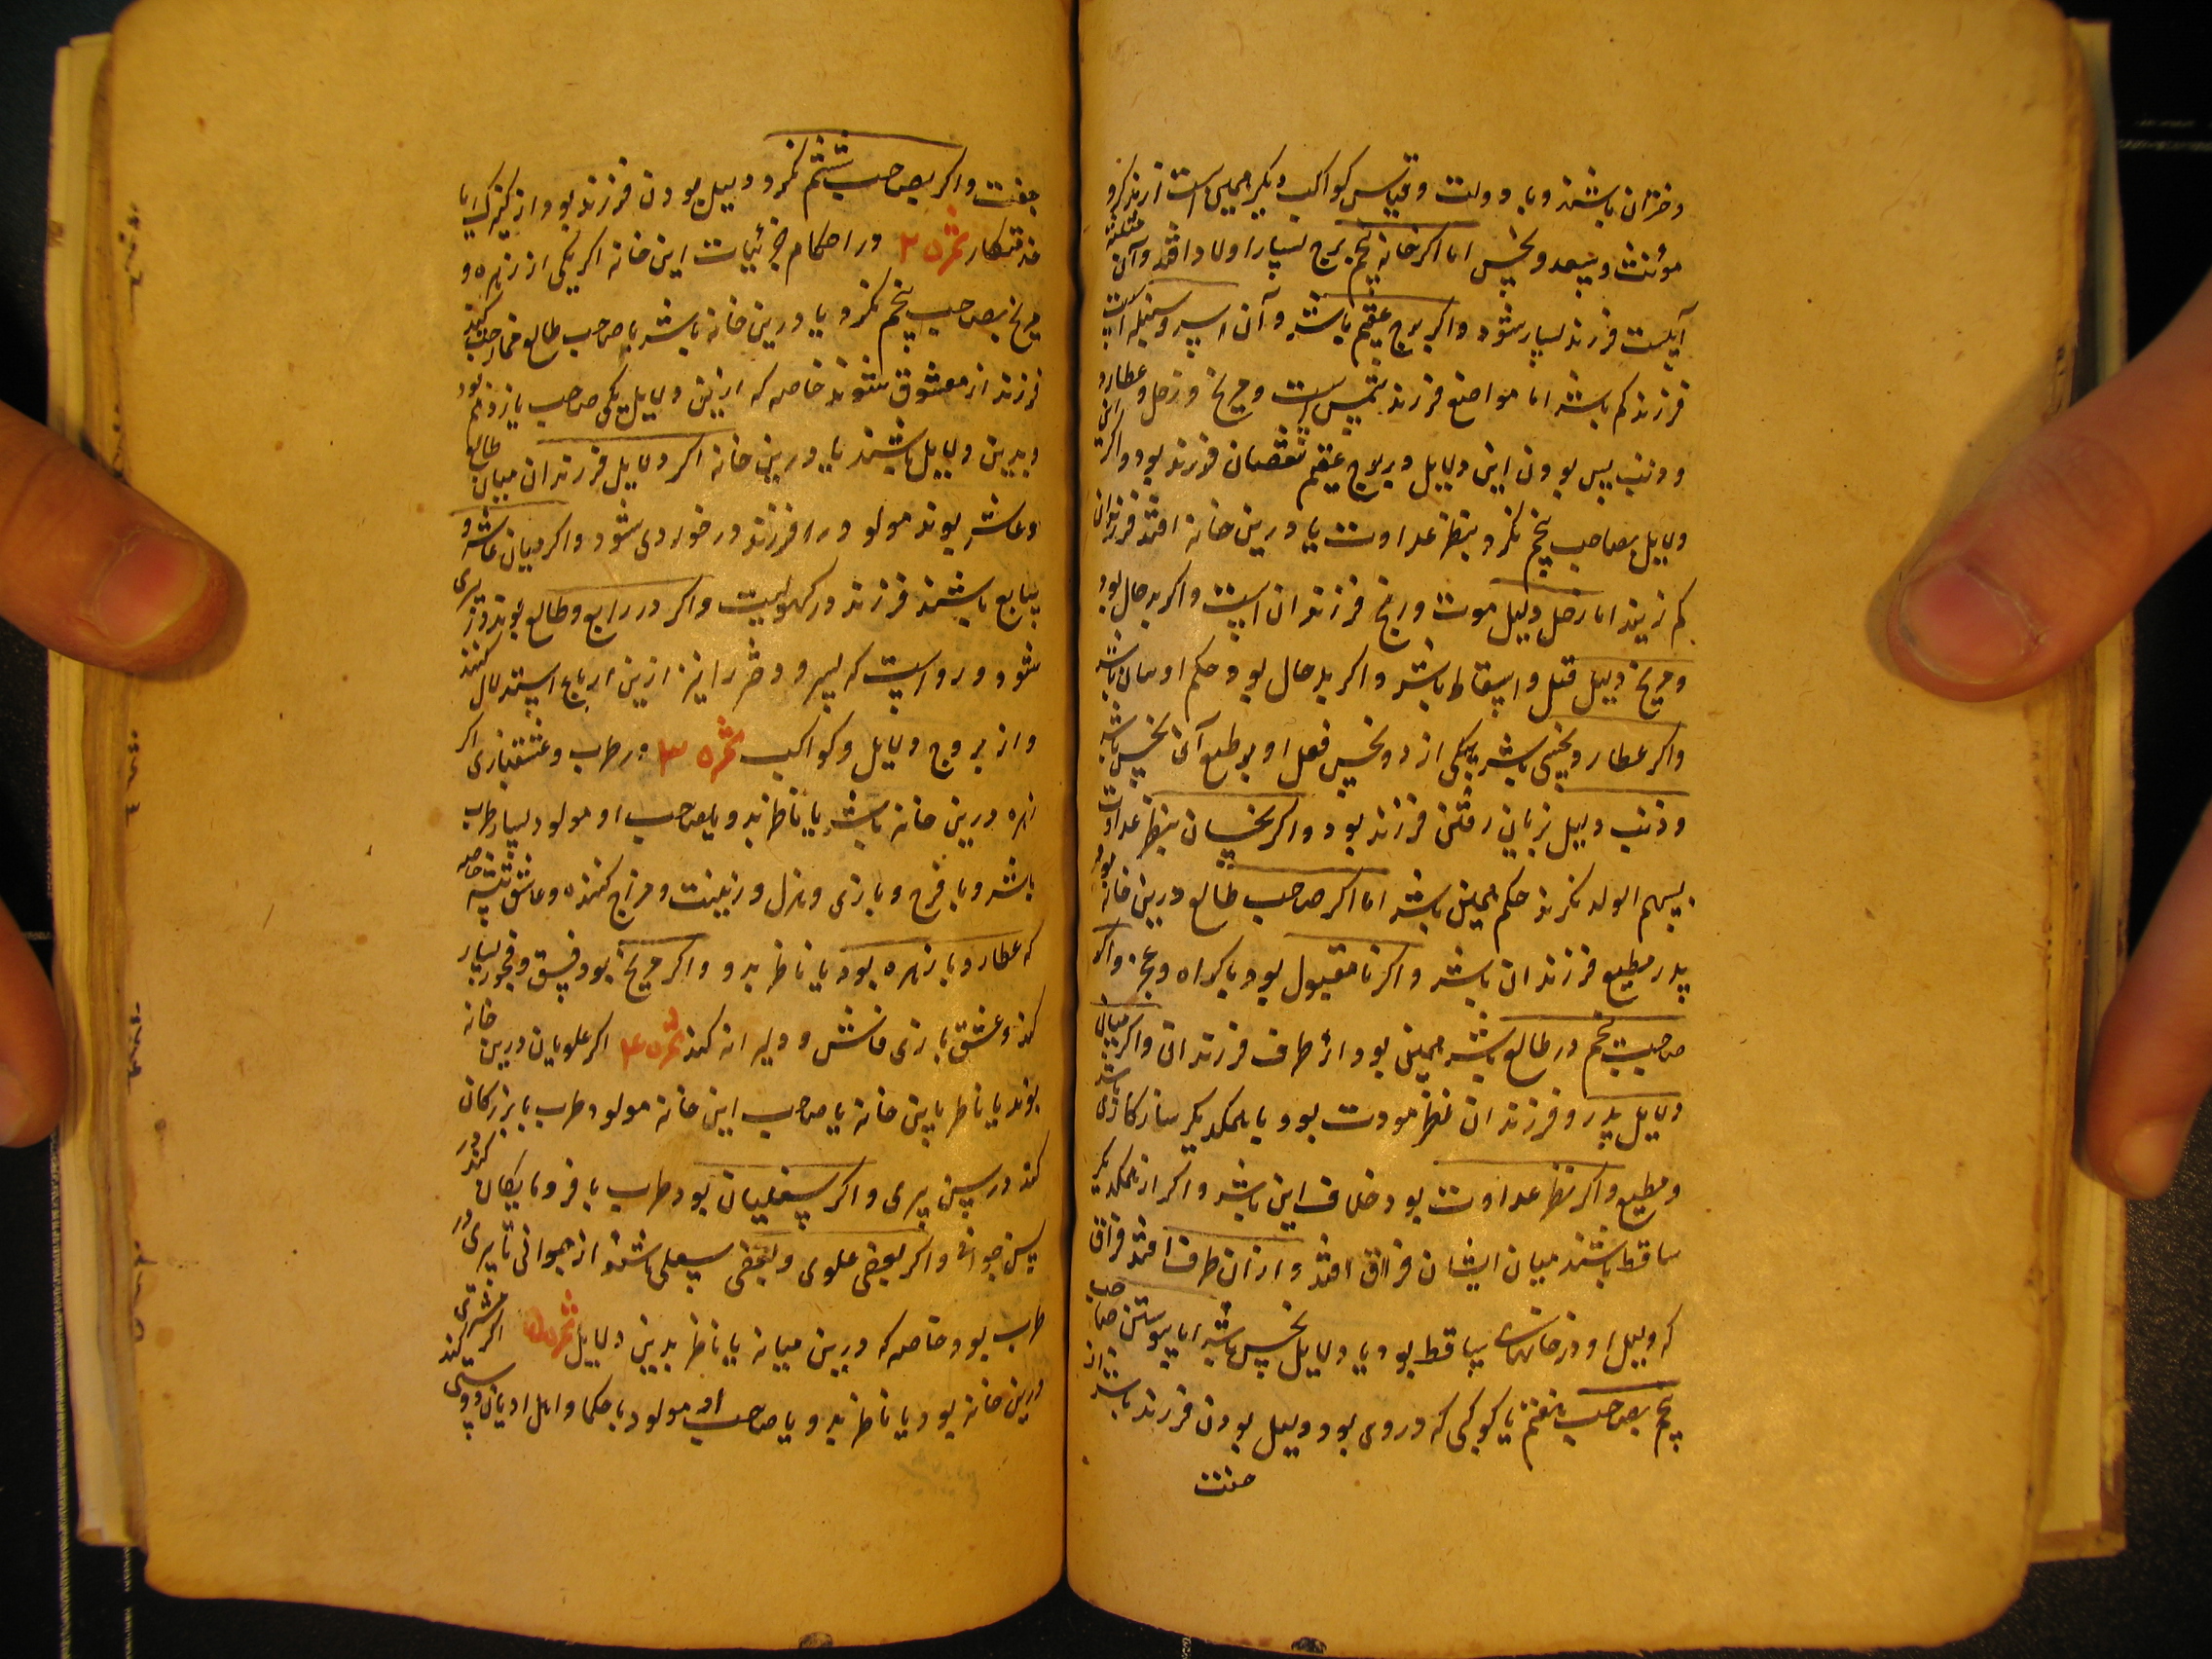 دختران باشند و با دولت و بقیاس کواکب دیگر همین است از مذکر و
مؤنث و سعد و نحس اما اگر خانه پنجم برج بسیار اولاد افتد و آن مثلثه
آبیست فرزند بسیار شود و اگر برج عقیم باشد و آن اسد و سنبله است
فرزند کم باشد اما مواضع فرزند شمس است و مریخ و زحل و عطارد
و ذنب پس بودن این دلایل در بروج عقیم نقصان فرزند بود و اگر این
دلایل بصاحب پنجم نگرد بنظر عداوت یا درین خانه افتند فرزندان
کم زیند اما زحل دلیل موت و رنج فرزندان است و اگر بدحال بود
و مریخ دلیل قتل و اسقاط باشد و اگر بدحال بود حکم او همان باشد
و اگر عطارد نحس باشد بیکی از دو نحس فعل او بر طبع آن نحس باشد
و ذنب دلیل بزیان رفتن فرزند بود و اگر نحسان بنظر عداوت
بسهم الولد نگرند حکم همین باشد اما اگر صاحب طالع درین خانه بود
پدر مطیع فرزندان باشد و اگر نامقبول بود باکراه و عجز و اگر
صاحب پنجم در طالع باشد همین بود از طرف فرزندان و اگر میان
دلایل پدر و فرزندان نظر مودت بود با یکدیگر سازگار باشند
و مطیع و اگر نظر عداوت بود خلاف این باشد و اگر از یکدیگر
ساقط باشند میان ایشان فراق افتد و از آن طرف افتد فراق
که دلیل او در خانهای ساقط بود یا دلایل نحس باشد اما پیوستن صاحب
پنجم بصاحب هفتم یا کوکبی که در وی بود دلیل بودن فرزند باشد از
جفت
جفت و اگر بصاحب ششم نگرد دلیل بودن فرزند بود از کنیزک یا
خدمتکار ثمره ۲ در احکام جزئیات این خانه اگر یکی از زهره و
مریخ بصاحب پنجم نگرد یا درین خانه باشد یا صاحب طالع
فرزند از معشوق شوند خاصه که ازین دلایل یکی صاحب یازدهم بود
و بدین دلایل باشند یا درین خانه اگر دلایل فرزندان میان طالع
و عاشر بوند مولود را فرزند در خوردی شود و اگر میان عاشر و
سابع باشند فرزند در کهولیت و اگر در رابع و طالع بوند در پیری
شود و رواست که پسر و دختر را نیز ازین ارباع استدلال کنند
و از بروج دلایل و کواکب ثمره ۳ در طرب و عشقبازی اگر
زهره درین خانه باشد یا ناظر بدو یا بصاحب او مولود بسیار طرب
باشد و با فرح و بازی و هزل و زینت و مزاح کننده و عاشق پیشه خاصه
که عطارد با زهره بود یا ناظر بدو و اگر مریخ بود فسق و فجور بسیار
کند و عشق بازی فاش و دلیرانه کند ثمره ۴ اگر علویان درین خانه
بوند یا ناظر باین خانه یا صاحب این خانه مولود طرب با بزرگان کند
کند در سن پیری و اگر سفلیان بود طرب با فرومایگان کند در
سن جوانی و اگر بعضی علوی و بعضی سفلی باشند از جوانی تا پیری در
طرب بود خاصه که درین میانه یا ناظر بدین دلایل ثمره ۵ اگر مشتری
درین خانه بود یا ناظر بدو یا صاحب او مولود با حکما و اهل ادیان دوستی کند